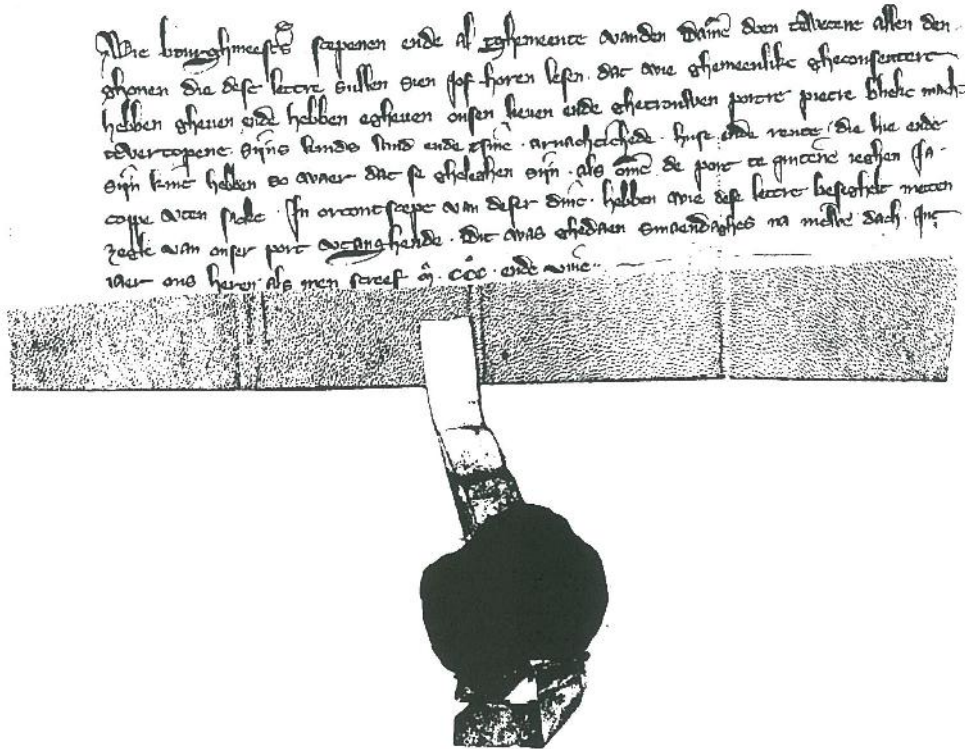 Wie bourghmeestr̃s scepenen ende al tghemeente vanden Dam̃e doen te wetene allen den
ghonen die dese lettre sullen sien jof horen lesen. dat wie ghemeenlike gheconsentert
hebben gheven ende hebben egheven onsen lieven ende ghetrouwen portre pietre macht
te vercopene sijns kinds land ende rente die hie ende
sijn kint hebben so waer dat se gheleghen sijn. als om̃e de port te
coppe uten sacke. In orcontscepe van deser dinc. hebben wie dese lettre beseghelt metten
zeghle van onser port utanghende. Dit was ghedaen smaendaghes na dach. Int
iaer ons heren als men screef m̊. ccc. ende